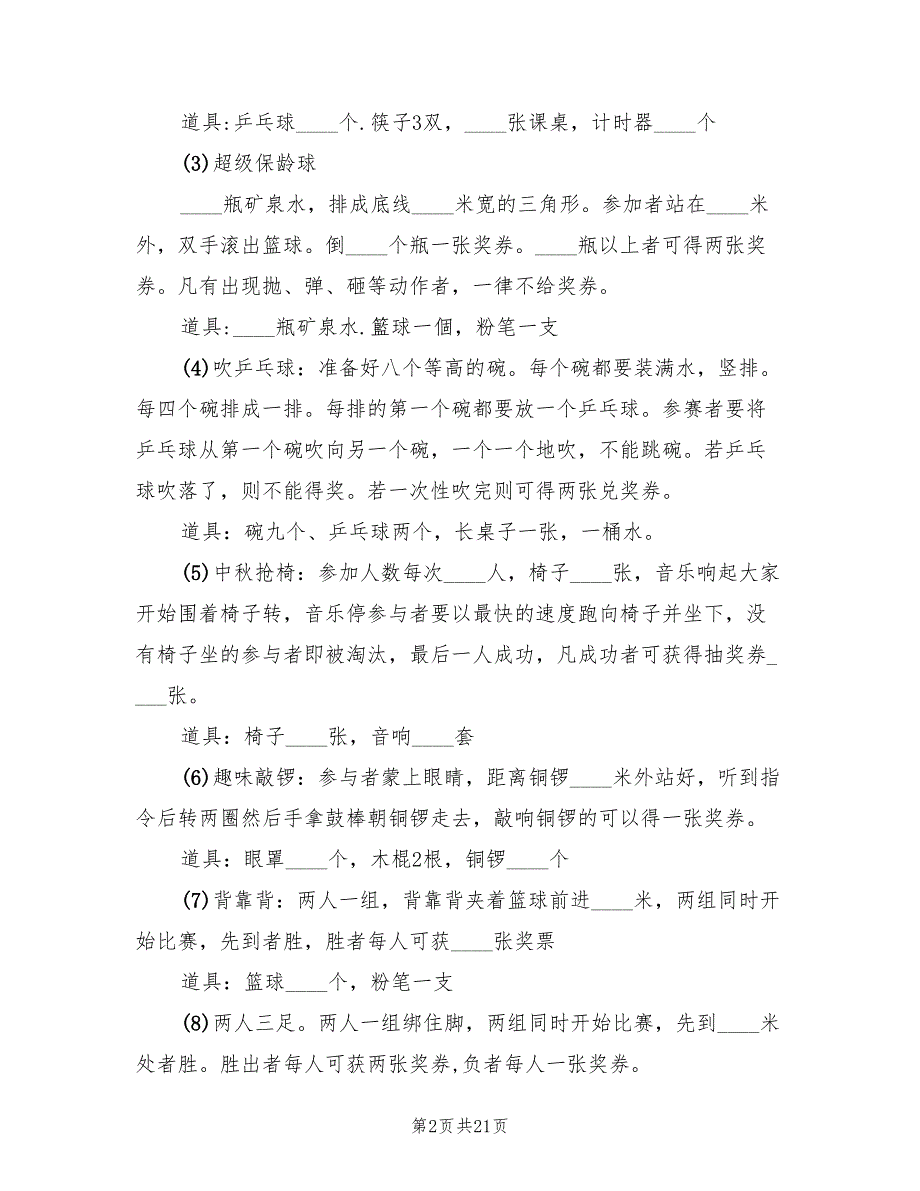 道具:乒乓球____个.筷子3双，____张课桌，计时器____个
(3)超级保龄球
____瓶矿泉水，排成底线____米宽的三角形。参加者站在____米
外，双手滚出篮球。倒____个瓶一张奖券。____瓶以上者可得两张奖
券。凡有出现抛、弹、砸等动作者，一律不给奖券。
道具:____瓶矿泉水.籃球一個，粉笔一支
(4)吹乒乓球：准备好八个等高的碗。每个碗都要装满水，竖排。
每四个碗排成一排。每排的第一个碗都要放一个乒乓球。参赛者要将
乒乓球从第一个碗吹向另一个碗，一个一个地吹，不能跳碗。若乒乓
球吹落了，则不能得奖。若一次性吹完则可得两张兑奖券。
道具：碗九个、乒乓球两个，长桌子一张，一桶水。
(5)中秋抢椅：参加人数每次____人，椅子____张，音乐响起大家
开始围着椅子转，音乐停参与者要以最快的速度跑向椅子并坐下，没
有椅子坐的参与者即被淘汰，最后一人成功，凡成功者可获得抽奖券_
___张。
道具：椅子____张，音响____套
(6)趣味敲锣：参与者蒙上眼睛，距离铜锣____米外站好，听到指
令后转两圈然后手拿鼓棒朝铜锣走去，敲响铜锣的可以得一张奖券。
道具：眼罩____个，木棍2根，铜锣____个
(7)背靠背：两人一组，背靠背夹着篮球前进____米，两组同时开
始比赛，先到者胜，胜者每人可获____张奖票
道具：篮球____个，粉笔一支
(8)两人三足。两人一组绑住脚，两组同时开始比赛，先到____米
处者胜。胜出者每人可获两张奖券,负者每人一张奖券。
第2页共21页